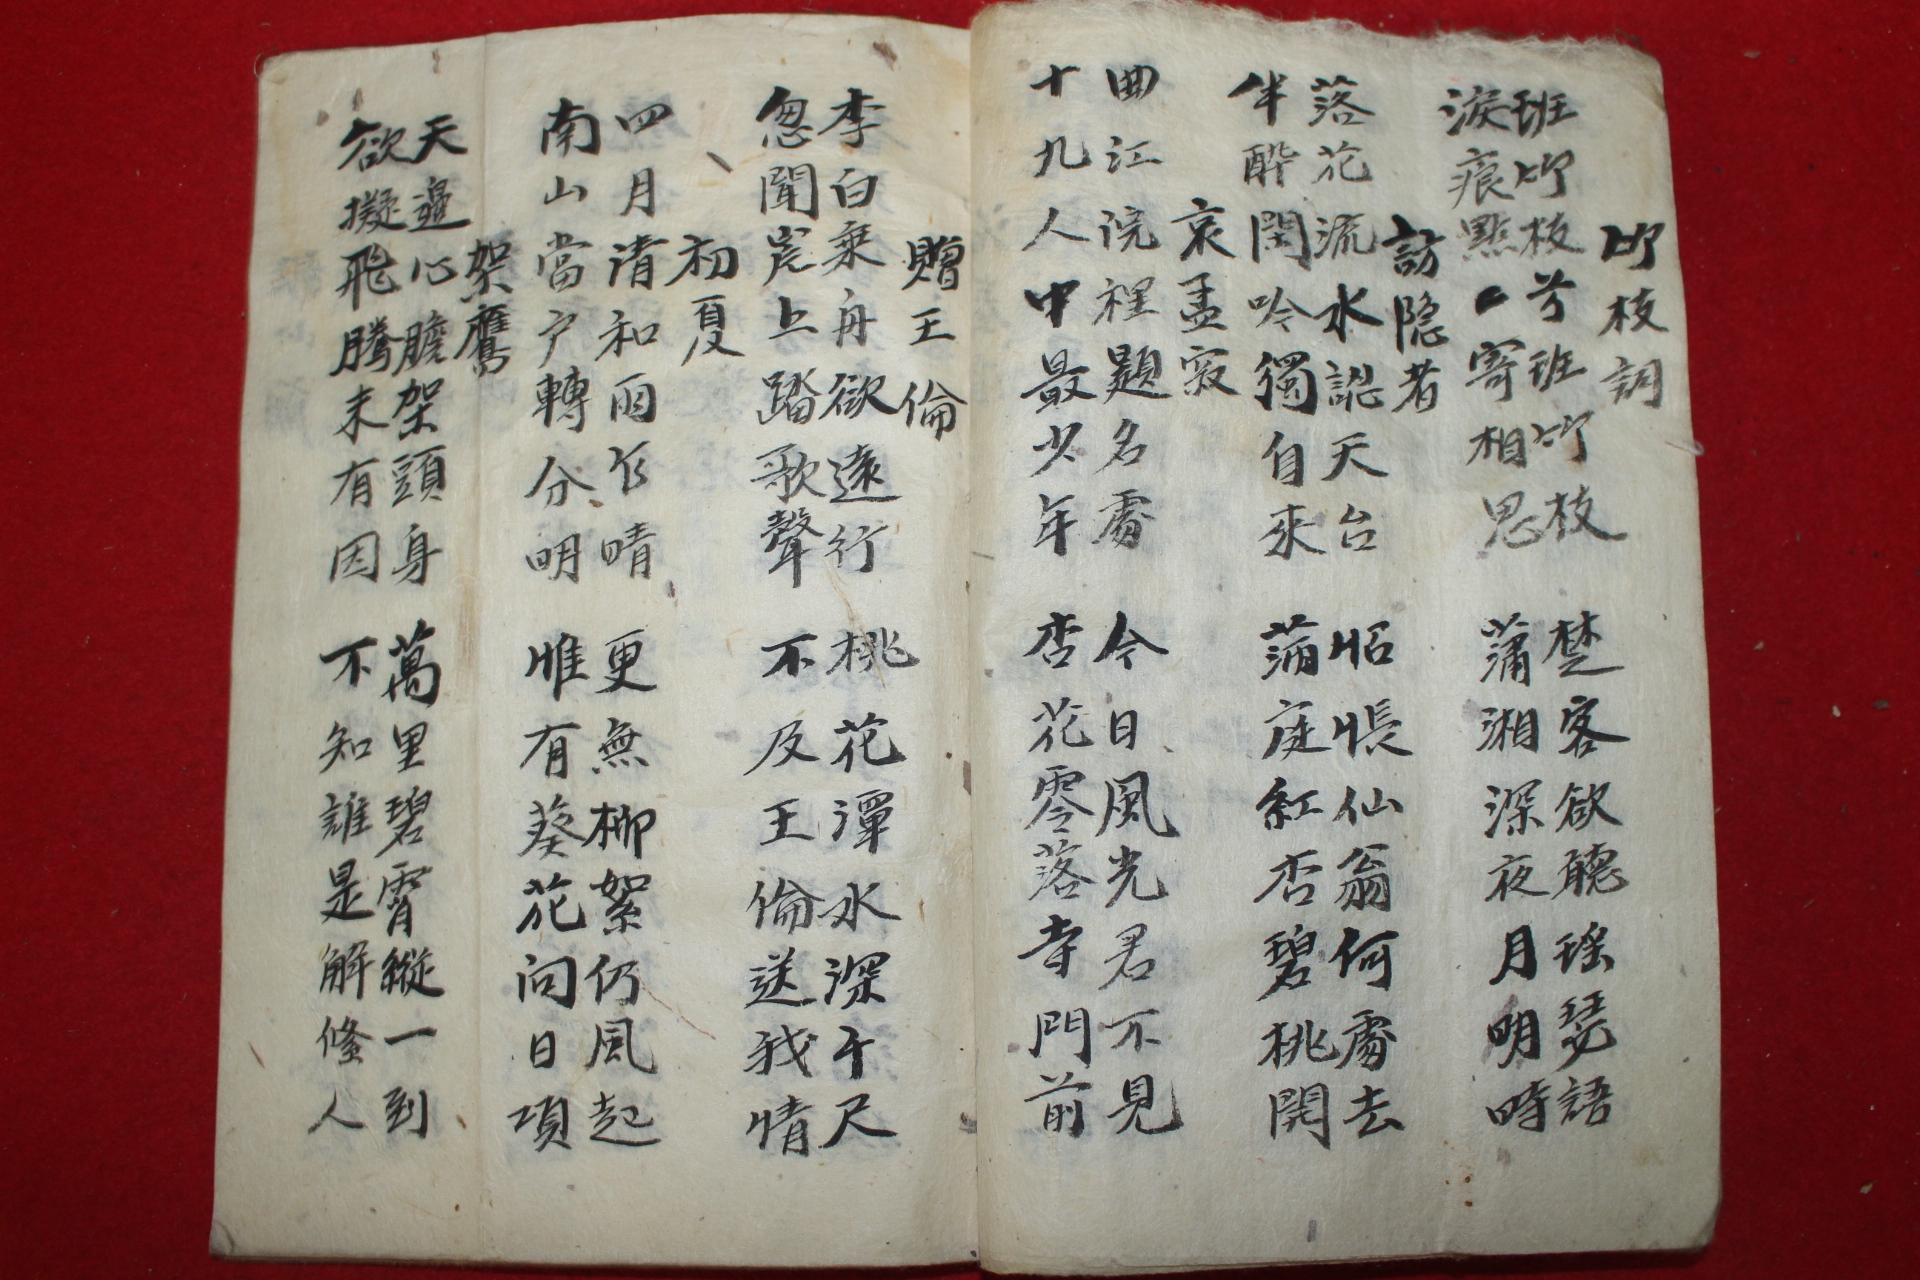 竹枝詞
班竹枝兮班竹枝
淚痕點〻寄相思
楚客欲聽瑤瑟語
蕭湘深夜月明時
訪隐者
落花流水訟天台
半酔閑吟獨自來
怊悵仙翁何處去
滿庭紅杏碧桃開
哀孟寂
曲江院裡題名處
十九人中最少年
今日風光君不見
杏花零落寺門前
贈王倫
李白乘舟欲遠行
忽聞岸上踏歌聲
桃花潭水深千尺
不及王倫送我情
初夏
四月清和雨乍晴
南山當户轉分明
更無柳絮仍風起
惟有葵花向日項
架鷹
天邊心膽架頭身
欲擬飛騰未有因
萬里碧霄縱一到
不知誰是解絛人